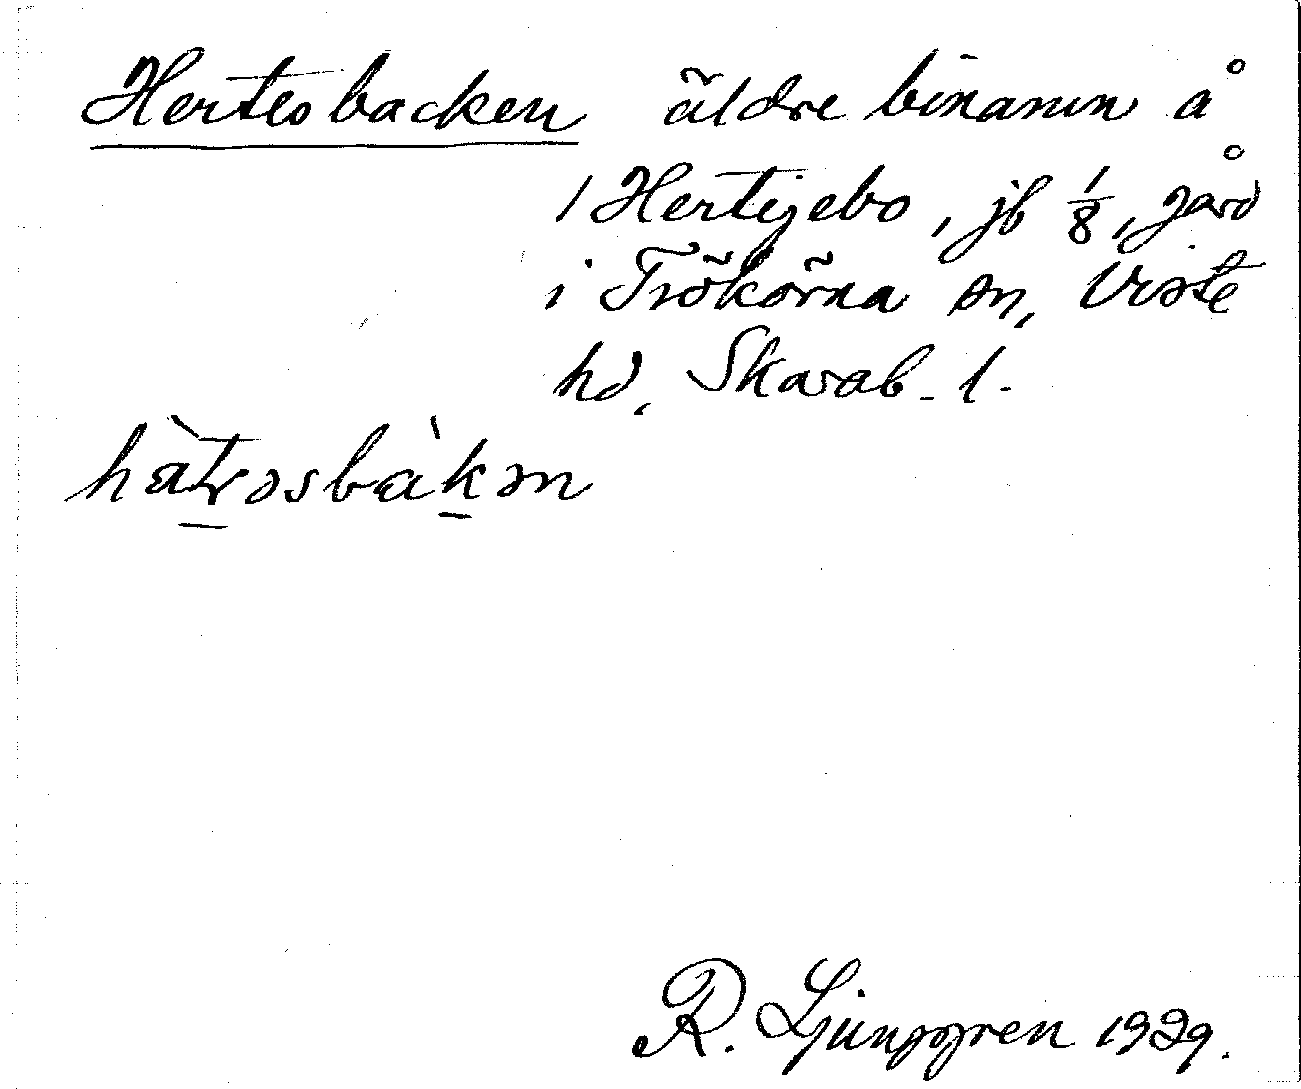 Hertesbacken äldre binamn å
1 Hertijebo, jb 1/8, gård
i Trökörna sn, Viste
hd, Skarab. l.
hàtrəsbàkən
R. Ljunggren 1929.